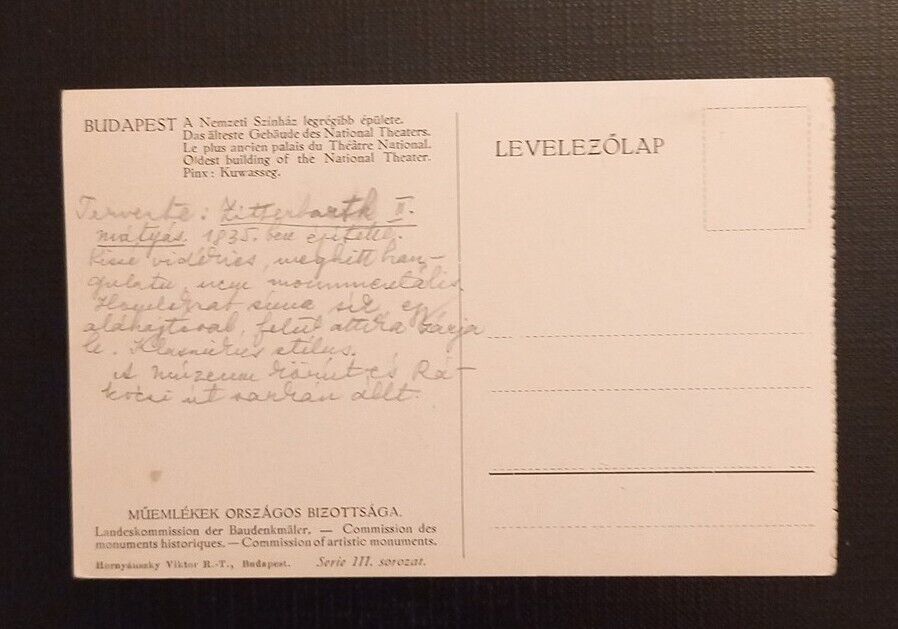 BUDAPEST A Nemzeti Szinház legrégibb épülete.
Das älteste Gebäude des National Theaters.
Le plus ancien palais du Théâtre National.
Oldest building of the National Theater.
Pinx: Kuwasseg.
Tervezte: Zitterbarth II.
mátyás. 1835. ben építette.
Kissé vidékies, meghitt han-
gulatu, nem monumentális.
Homlokzat sima sík, egy
aláhajtóval, felül attika zárja
le. Klasszikus stílus.
A múzeum körút és Rá-
kóczi út sarkán állt.
MŰEMLÉKEK ORSZÁGOS BIZOTTSÁGA.
Landeskommission der Baudenkmäler. — Commission des
monuments historiques. — Commission of artistic monuments.
Hornyánszky Viktor R.-T., Budapest. Serie III. sorozat.
LEVELEZŐLAP